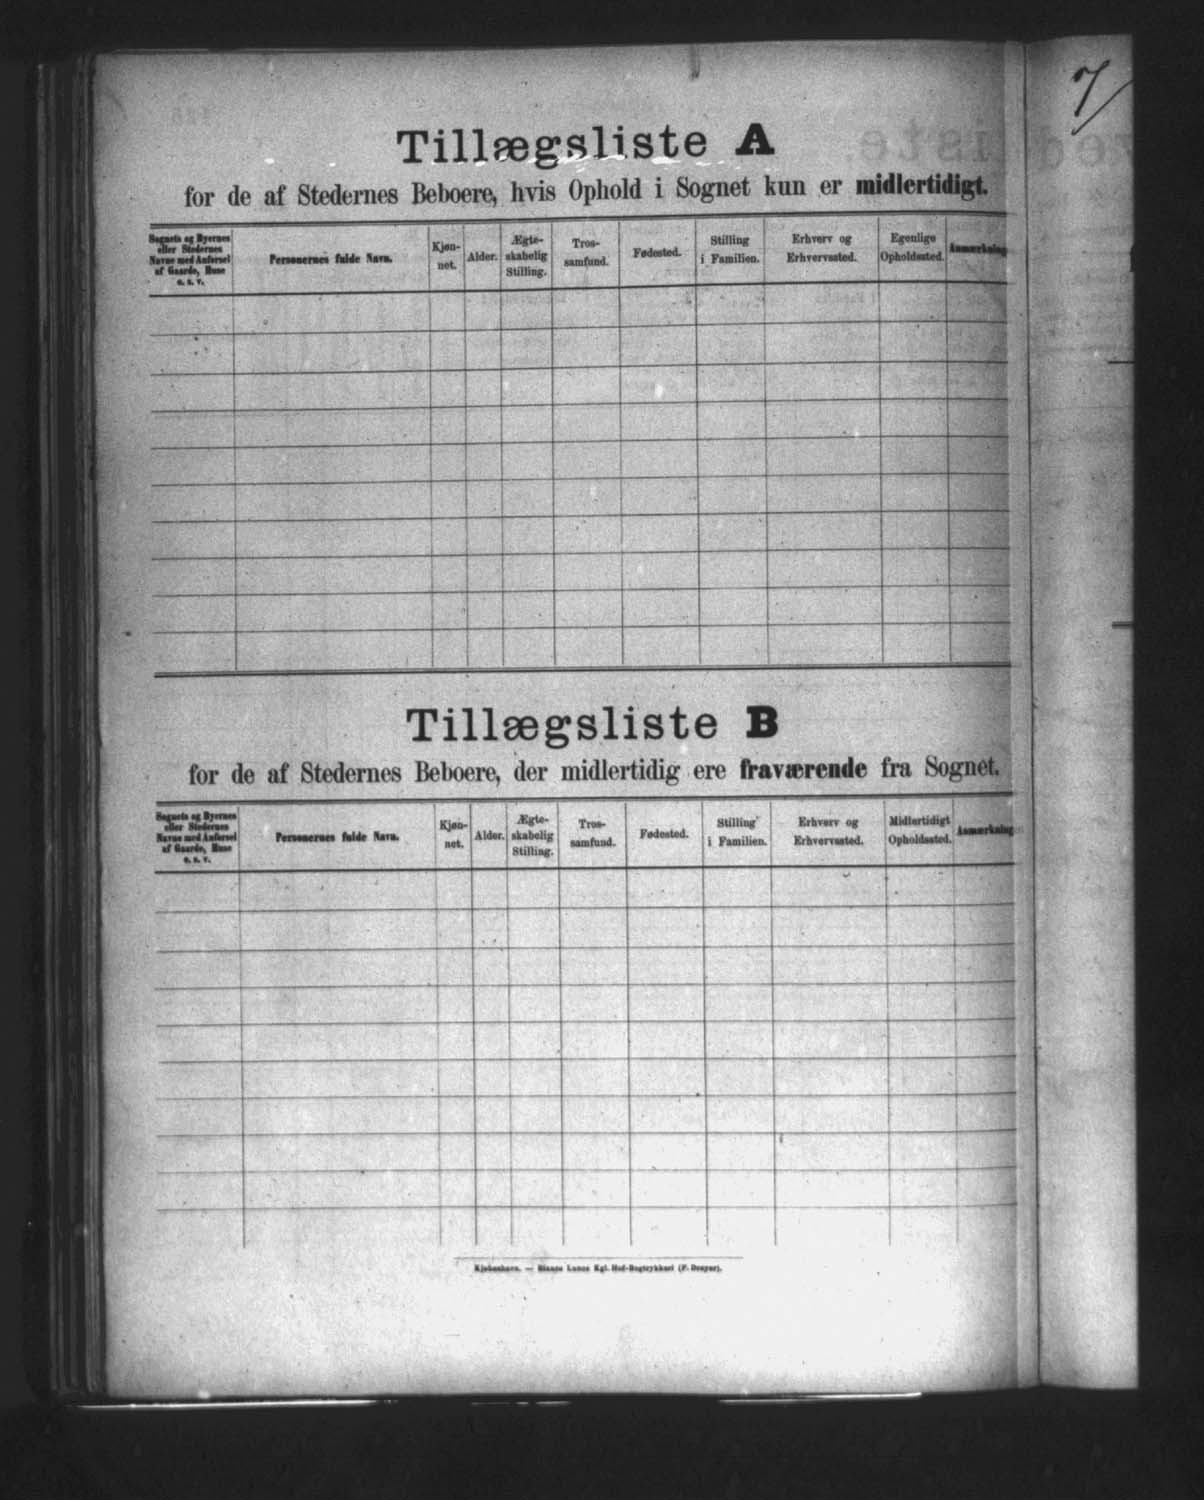 7
Tillægsliste A
for de af Stedernes Beboere, hvis Ophold i Sognet kun er midlertidigt.
Sognets og Byernes
eller Stedernes
Navne med Anførsel
af Gaarde, Huse
o. s. v.
Personernes fulde Navn.
Kjøn-
net.
Alder.
Ægte-
skabelig
Stilling.
Tros-
samfund.
Fødested.
Stilling
i Familien.
Erhverv og
Erhvervssted.
Egenlige
Opholdssted.
Anmærkning
Tillægsliste B
for de af Stedernes Beboere, der midlertidig ere fraværende fra Sognet.
Sognets og Byernes
eller Stedernes
Navne med Anførsel
af Gaarde, Huse
o. s. v.
Personernes fulde Navn.
Kjøn-
net.
Alder.
Ægte-
skabelig
Stilling.
Tros-
samfund.
Fødested.
Stilling
i Familien.
Erhverv og
Erhvervssted.
Midlertidigt
Opholdssted.
Anmærkning
Kjøbenhavn. — Bianco Lunos Kgl. Hof-Bogtrykkeri (F. Dreyer).